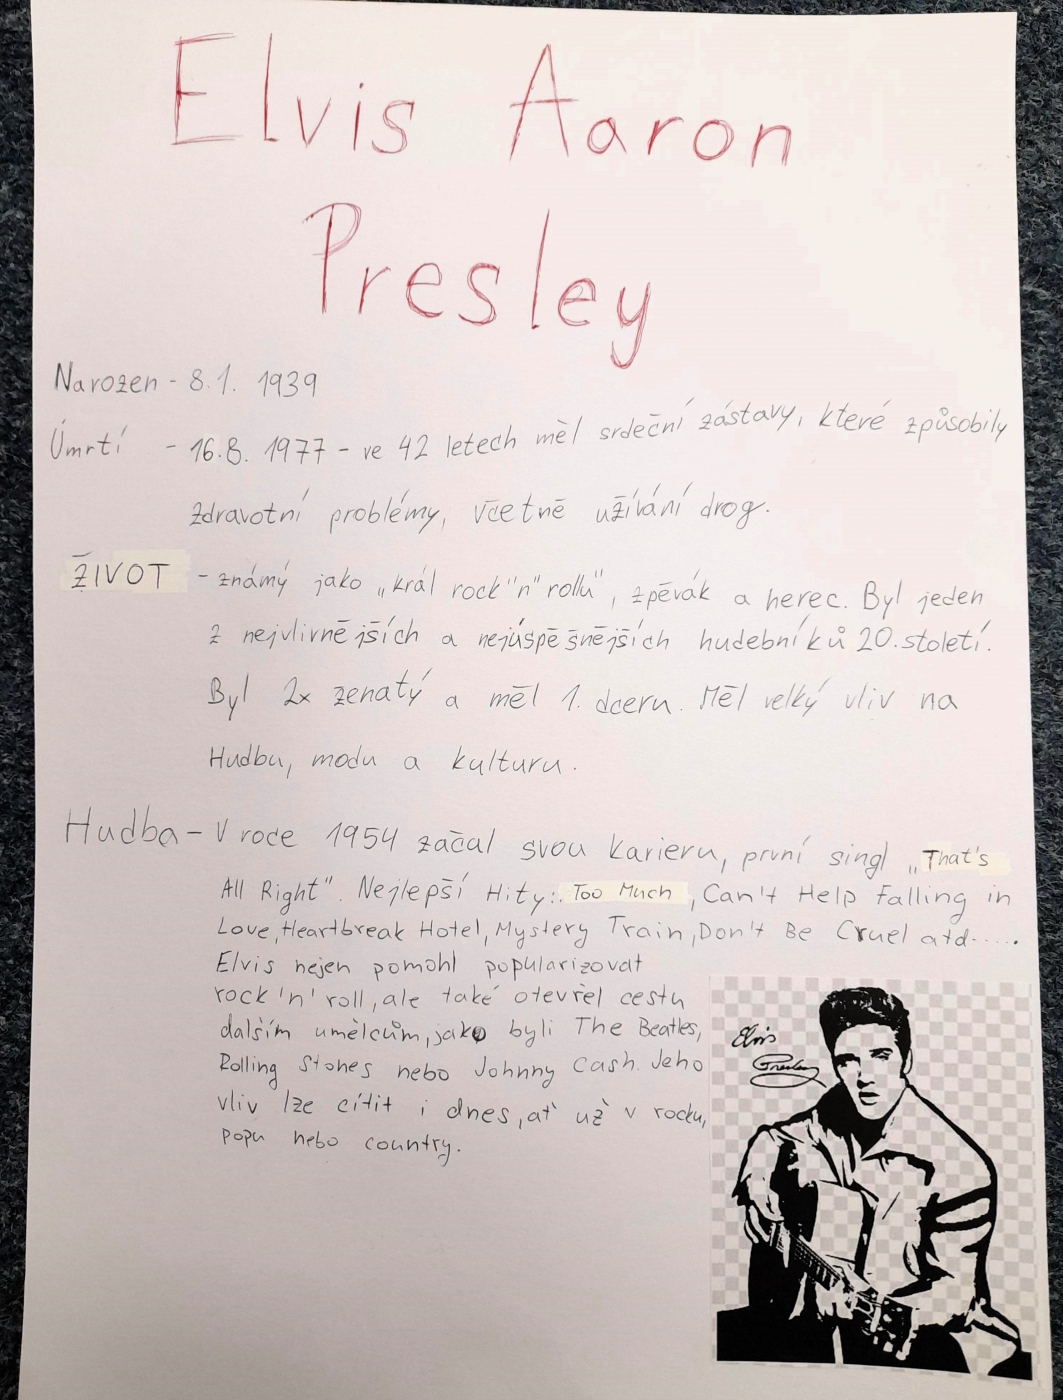 Elvis Aaron
Presley
Narozen - 8.1. 1939
Úmrtí - 16.8. 1977 - ve 42 letech měl srdeční zástavy, které způsobily
zdravotní problémy, včetně užívání drog.
ŽIVOT - známý jako „král rock"n" rollu", zpěvák a herec. Byl jeden
z nejvlivnějších a nejúspěšnějších hudebníků 20.století.
Byl 2x ženatý a měl 1. dceru. Měl velký vliv na
Hudbu, modu a kulturu.
Hudba - V roce 1954 začal svou karieru, první singl „That's
All Right". Nejlepší Hity:. Too Much, Can't Help Falling in
Love, Heartbreak Hotel, Mystery Train, Don't Be Cruel atd.....
Elvis nejen pomohl popularizovat
rock 'n' roll, ale také otevřel cestu
dalším umělcům, jako byli The Beatles,
Rolling Stones nebo Johnny Cash. Jeho
vliv lze cítit i dnes, ať už v rocku,
popu nebo country.
Elvis
Presley